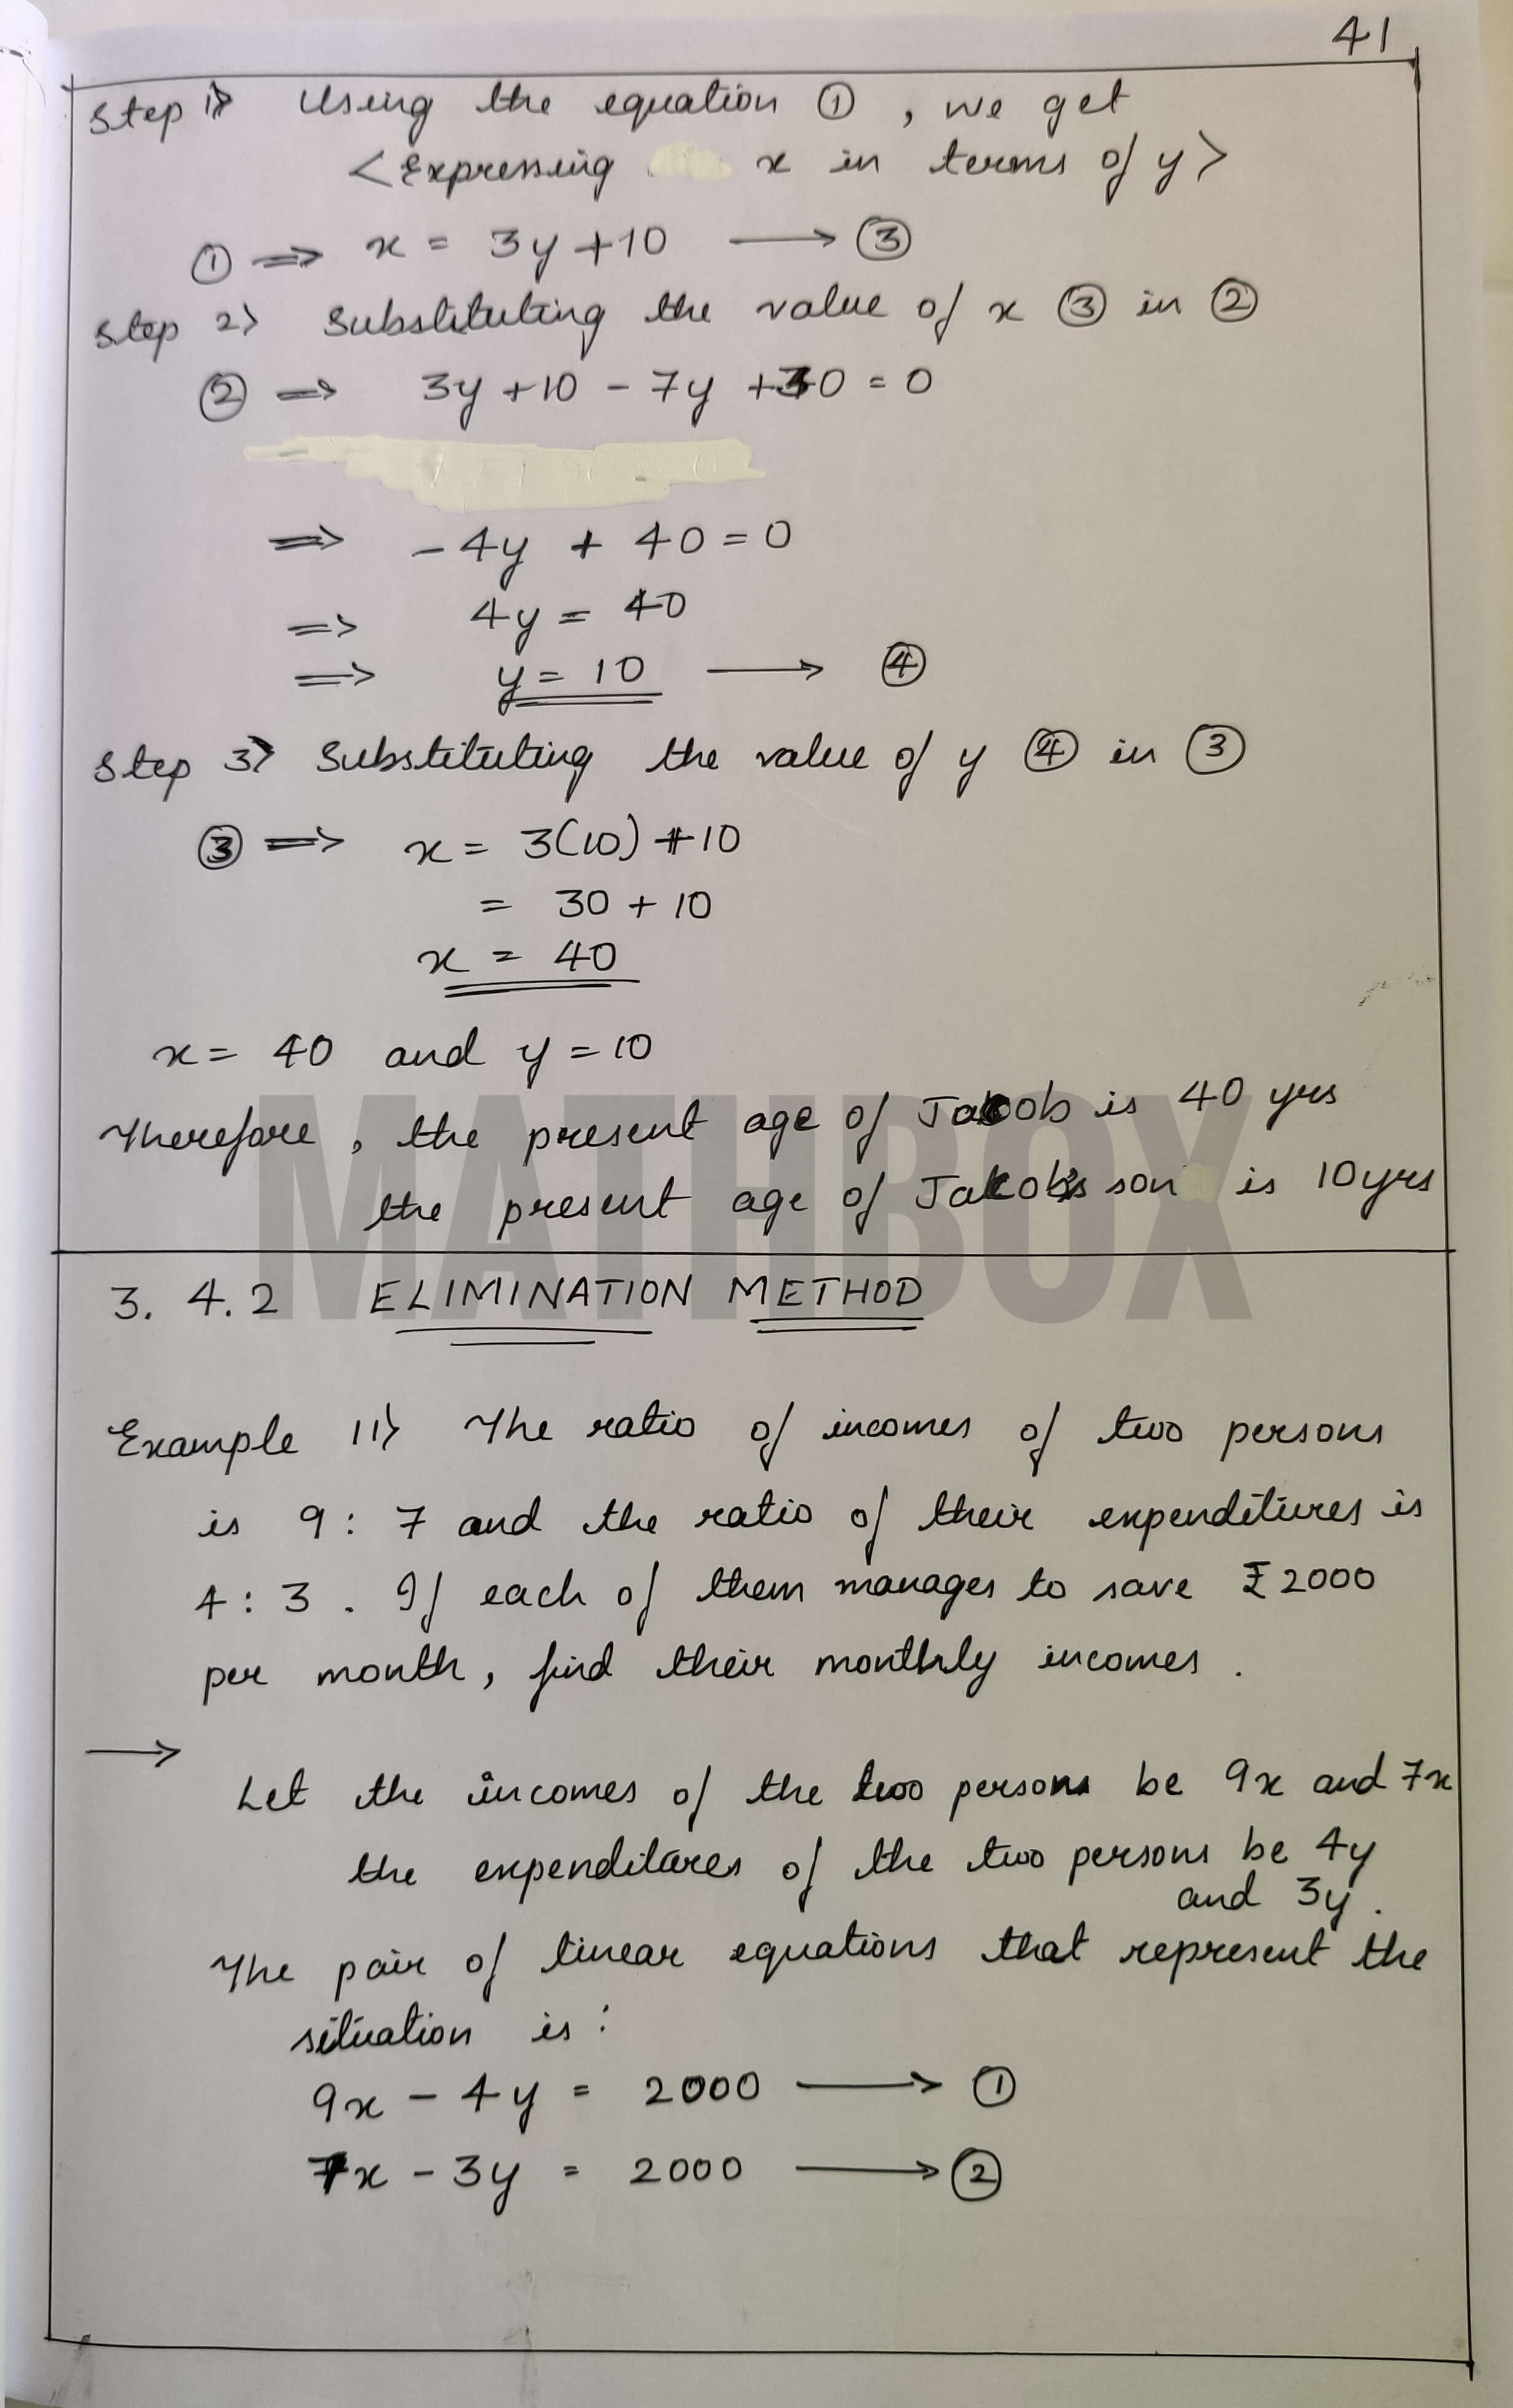 41
Step 1> Using the equation ①, we get
<Expressing x in terms of y>
① => x = 3y+10 ⟶ ③
Step 2> Substituting the value of x ③ in ②
② => 3y+10 - 7y +30 = 0
=> -4y + 40 = 0
=> 4y = 40
=> y = 10 ⟶ ④
Step 3> Substituting the value of y ④ in ③
③ => x = 3(10) + 10
= 30 + 10
x = 40
x = 40 and y = 10
Therefore, the present age of Jacob is 40 yrs
the present age of Jacob's son is 10yrs
MATHBOX
3.4.2 ELIMINATION METHOD
Example 11> The ratio of incomes of two persons
is 9:7 and the ratio of their expenditures is
4:3. If each of them manages to save ₹2000
per month, find their monthly incomes.
⟶
Let the incomes of the two persons be 9x and 7x
the expenditures of the two persons be 4y
and 3y.
The pair of linear equations that represent the
situation is:
9x - 4y = 2000 ⟶ ①
7x - 3y = 2000 ⟶ ②